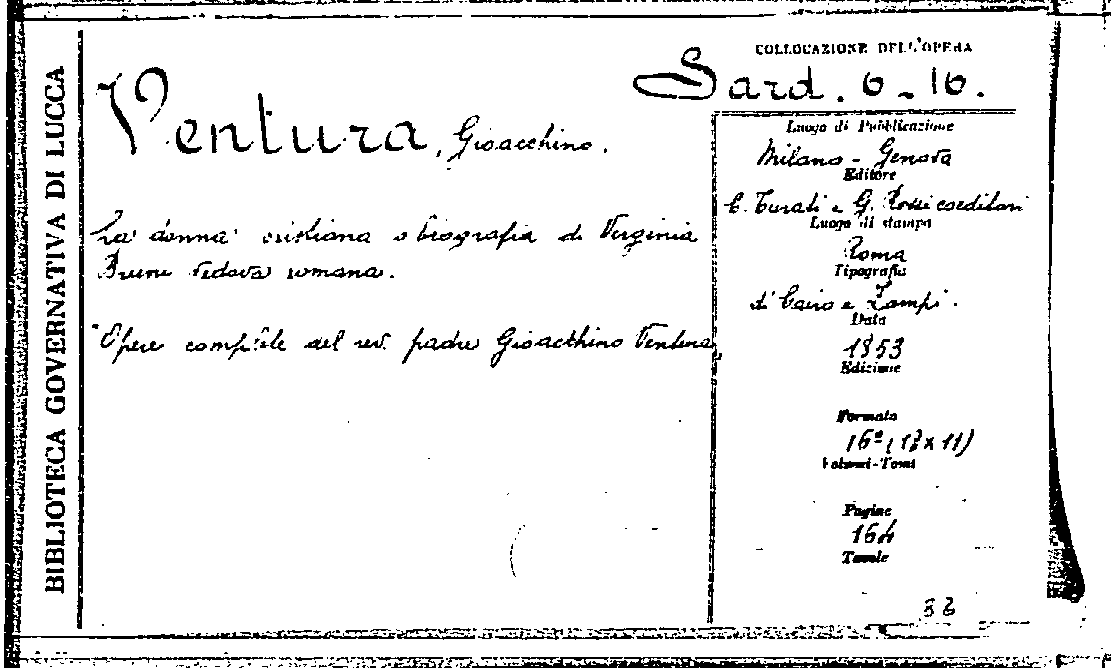 BIBLIOTECA GOVERNATIVA DI LUCCA
COLLOCAZIONE DELL'OPERA
Sard. 6-16.
Ventura, Gioacchino.
La donna cristiana o biografia di Virginia
Bruni vedova romana.
"Opere complete del rev. padre Gioacchino Ventura"
Luogo di Pubblicazione
Milano - Genova
Editore
C. Turati e G. Rossi coeditori
Luogo di stampa
Roma
Tipografia
di Cairo e Zampi.
Data
1853
Edizione
Formato
16º (17x11)
Volumi-Tomi
Pagine
164
Tavole